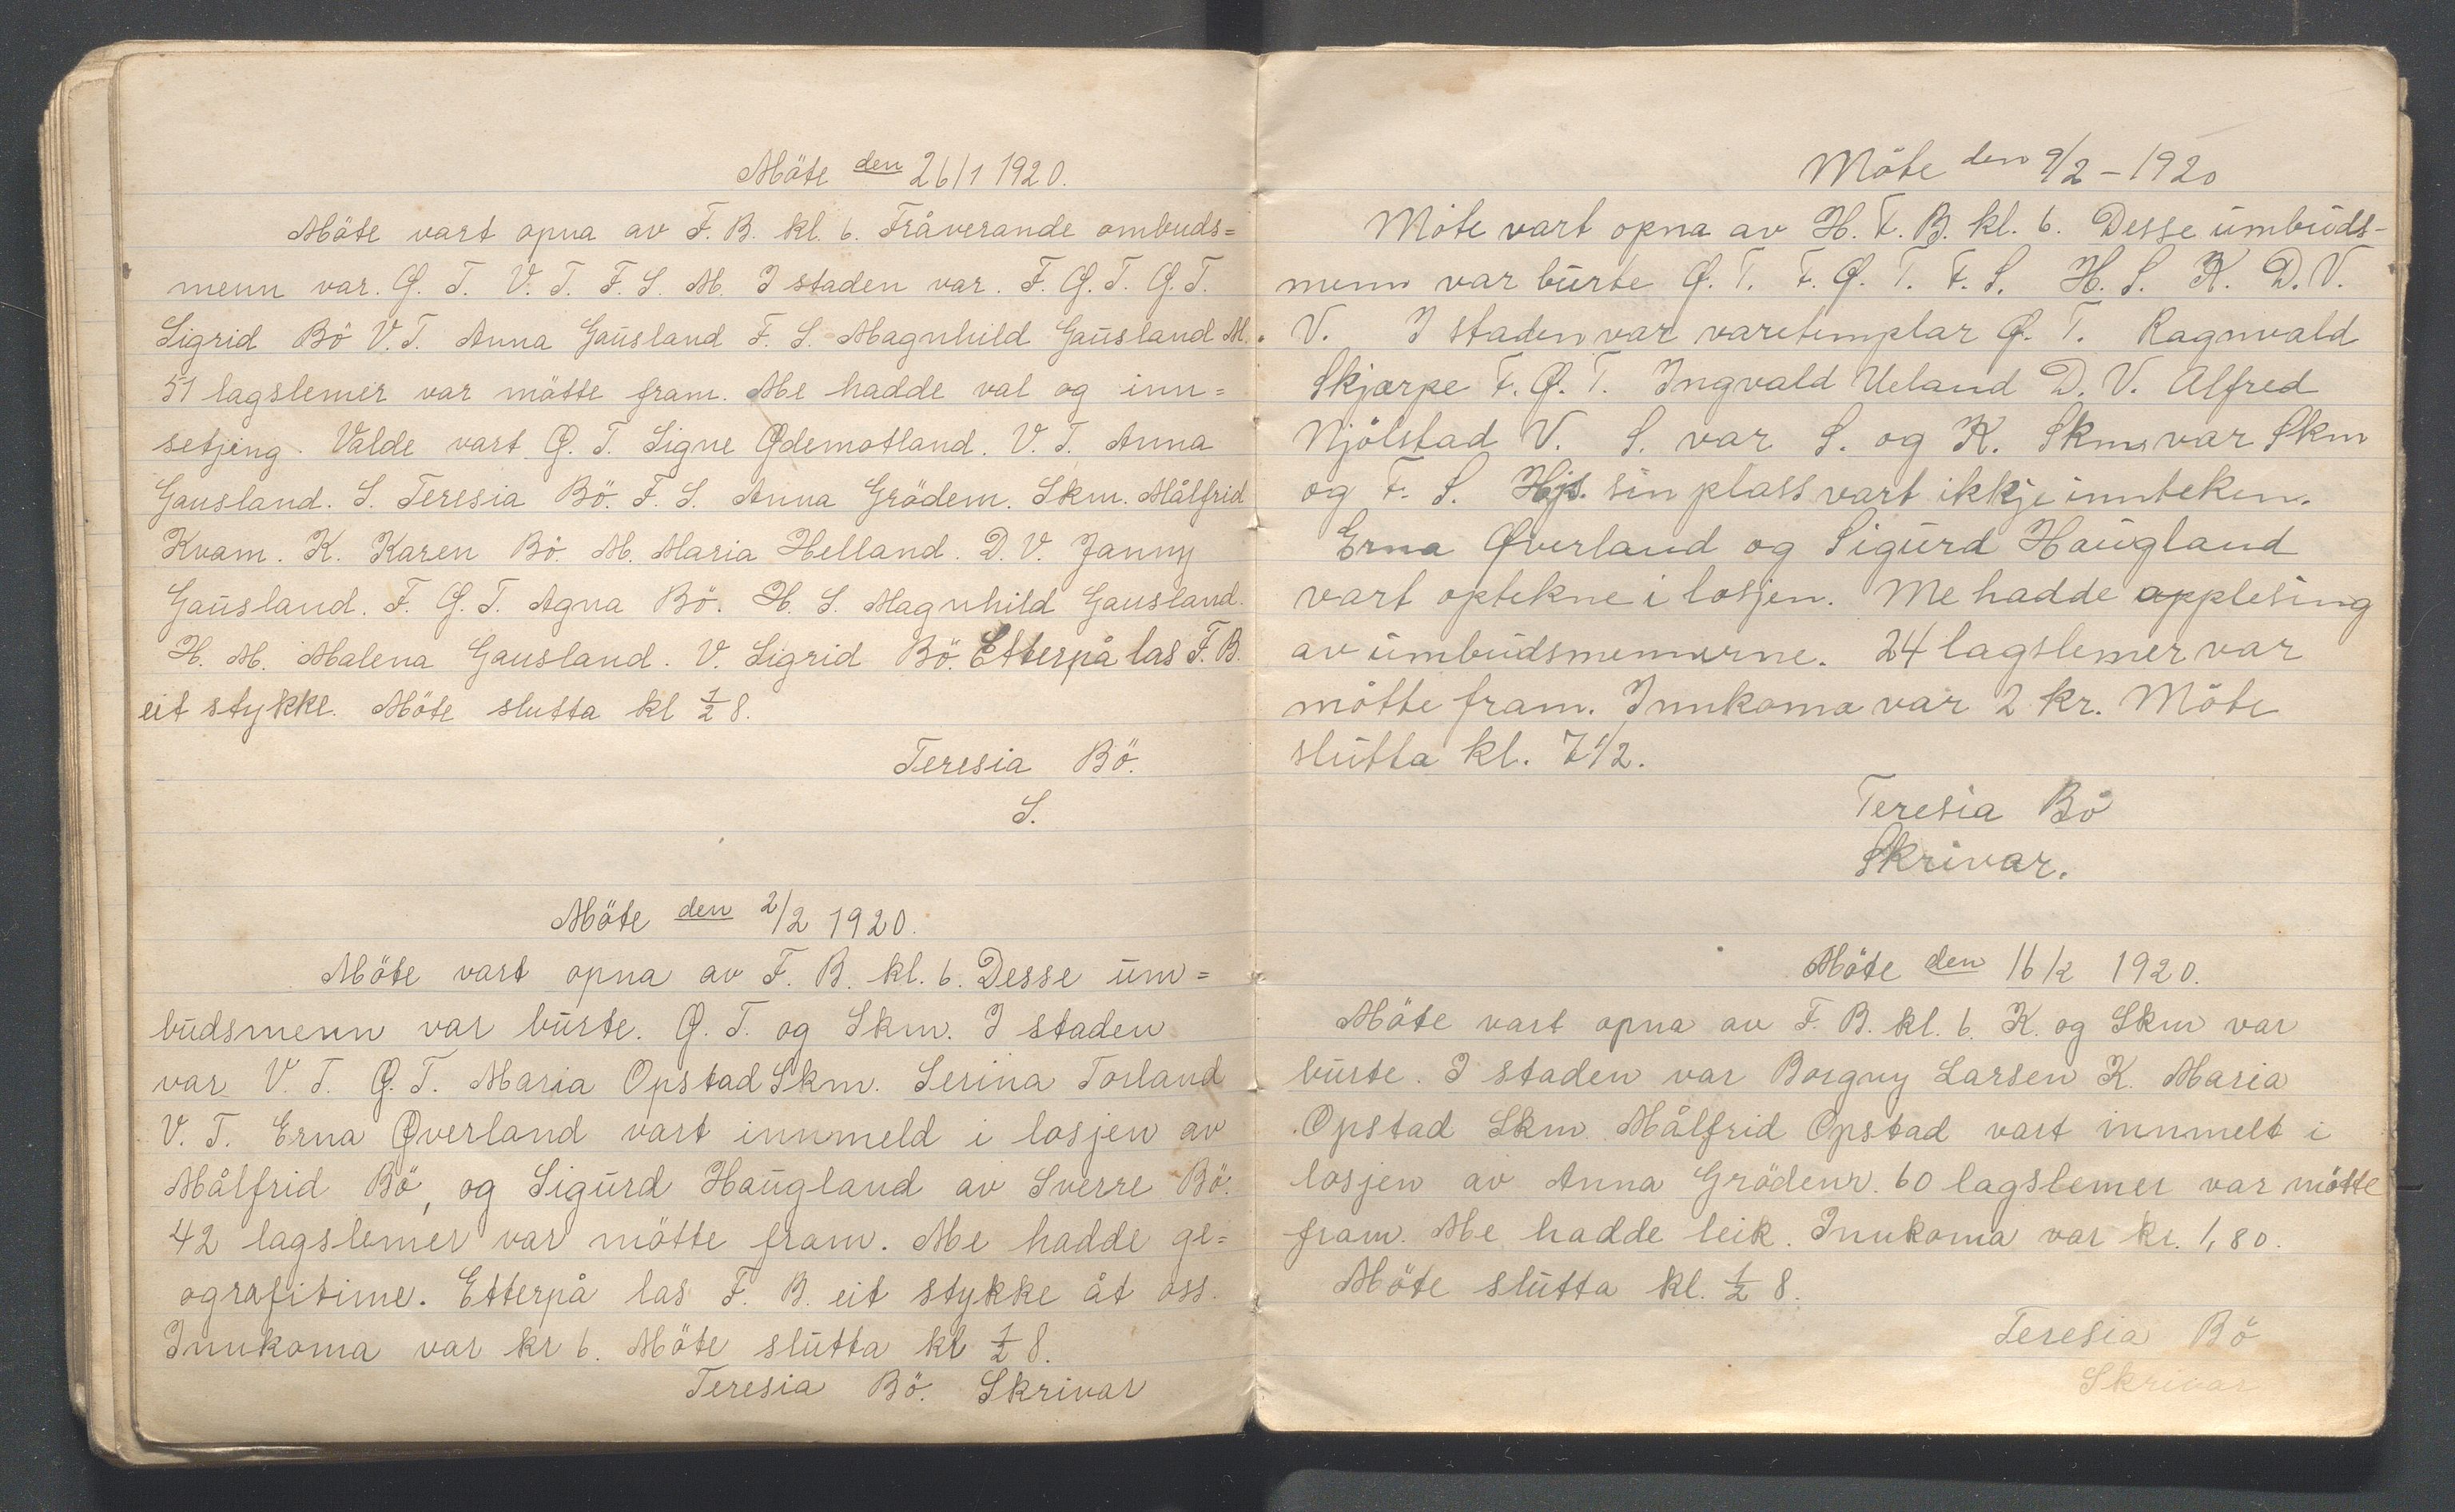 Möte den 26/1 1920.
Möte vart opna av F. B. kl. 6. Fråverande ombuds=
menn var. Ø. T. V. T. F. S. M. I staden var. F. Ø. T. Ø. T.
Sigrid Bö V. T. Anna Gausland F. S. Magnhild Gausland M.
51 lagslemer var mötte fram. Me hadde val og inn=
setjing. Valde vart Ø. T. Signe Ødemotland. V. T. Anna
Gausland. S. Teresia Bö. F. S. Anna Grödem. Skm. Målfrid
Kvam. K. Karen Bö. M. Maria Helland. D. V. Janny
Gausland. F. Ø. T. Agna Bö. H. S. Magnhild Gausland.
H. M. Malena Gausland. V. Sigrid Bö. Etterpå las F. B.
eit stykke. Möte slutta kl ½ 8.
Teresia Bö.
S.
Möte den 2/2 1920.
Möte vart opna av F. B. kl. 6. Desse um=
budsmenn var burte. Ø. T. og Skm. I staden
var V. T. Ø. T. Maria Opstad Skm. Serina Torland
V. T. Erna Øverland vart innmeld i losjen av
Målfrid Bö, og Sigurd Haugland av Sverre Bö.
42 lagslemer var mötte fram. Me hadde ge=
ografitime. Etterpå las F. B. eit stykke åt oss.
Innkoma var kr 6. Möte slutta kl ½ 8.
Teresia Bö. Skrivar
Möte den 9/2 - 1920
Möte vart opna av H. F. B. kl. 6. Desse umbuds-
menn var burte Ø. T. F. Ø. T. F. S. H. S. K. D. V.
V. I staden var varetemplar Ø. T. Ragnvald
Skjærpe F. Ø. T. Ingvald Ueland D. V. Alfred
Njölstad V. S. var S. og K. Skm var Skm
og F. S. Hjs. sin plass vart ikkje innteken.
Erna Øverland og Sigurd Haugland
vart optekne i losjen. Me hadde applesing
av umbudsmennerne. 24 lagslemer var
mötte fram. Innkoma var 2 kr. Möte
slutta kl. 7 1/2.
Teresia Bö
Skrivar.
Möte den 16/2 1920.
Möte vart opna av F. B. kl. 6. K. og Skm var
burte. I staden var Borgny Larsen K. Maria
Opstad Skm. Målfrid Opstad vart innmelt i
losjen av Anna Grödem. 60 lagslemer var mötte
fram. Me hadde leik. Innkoma var kr. 1,80.
Möte slutta kl. ½ 8.
Teresia Bö
Skrivar